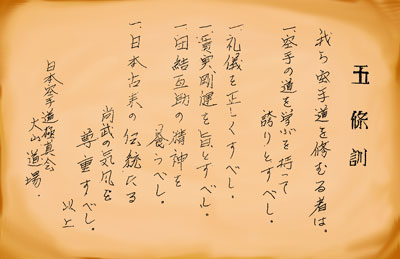 五條訓
我ら空手道を修むる者は。
一.空手の道を学ぶを持って
誇りとすべし。
一.礼儀を正しくすべし。
一.質実剛健を旨とすべし。
一.団結互助の精神を
養うべし。
一.日本古来の伝統たる
尚武の気風を
尊重すべし。
以上
日本空手道極真会
大山道場.